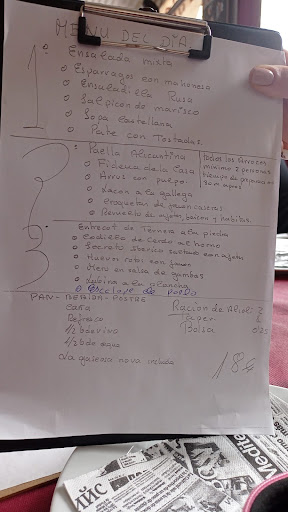 MENU DEL DIA
1º
Ensalada mixta
Esparragos con mahonesa
Ensaladilla Rusa
Salpicon de marisco
Sopa Castellana
Pate con Tostadas
2º
Paella Alicantina
Fideua de la Casa
Arros con pulpo
Lacon a la gallega
Croquetas de jamon caseras
Revuelto de ajetes, bacon y habitas
todos los arroces
minimo 2 personas
tiempo de
30 m aprox
3º
Entrecot de Ternera a la piedra
Codillo de Cerdo al horno
Secreto iberico con ajetes
Huevos rotos con jamon
Mero en salsa de gambas
a la plancha
PAN - BEBIDA - POSTRE
Caña
Refresco
1/2 b de vino
1/2 b de agua
Ración de Alioli 2
Taper
Bolsa
18€
Medite